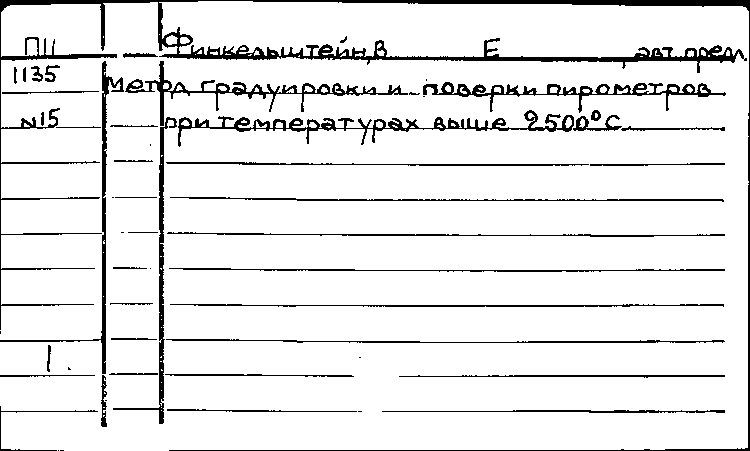 П11 Финкельштейн, В Е , авт. предл.
1135 Метод градуировки и поверки пирометров
N15 при температурах выше 2500°С.
1.